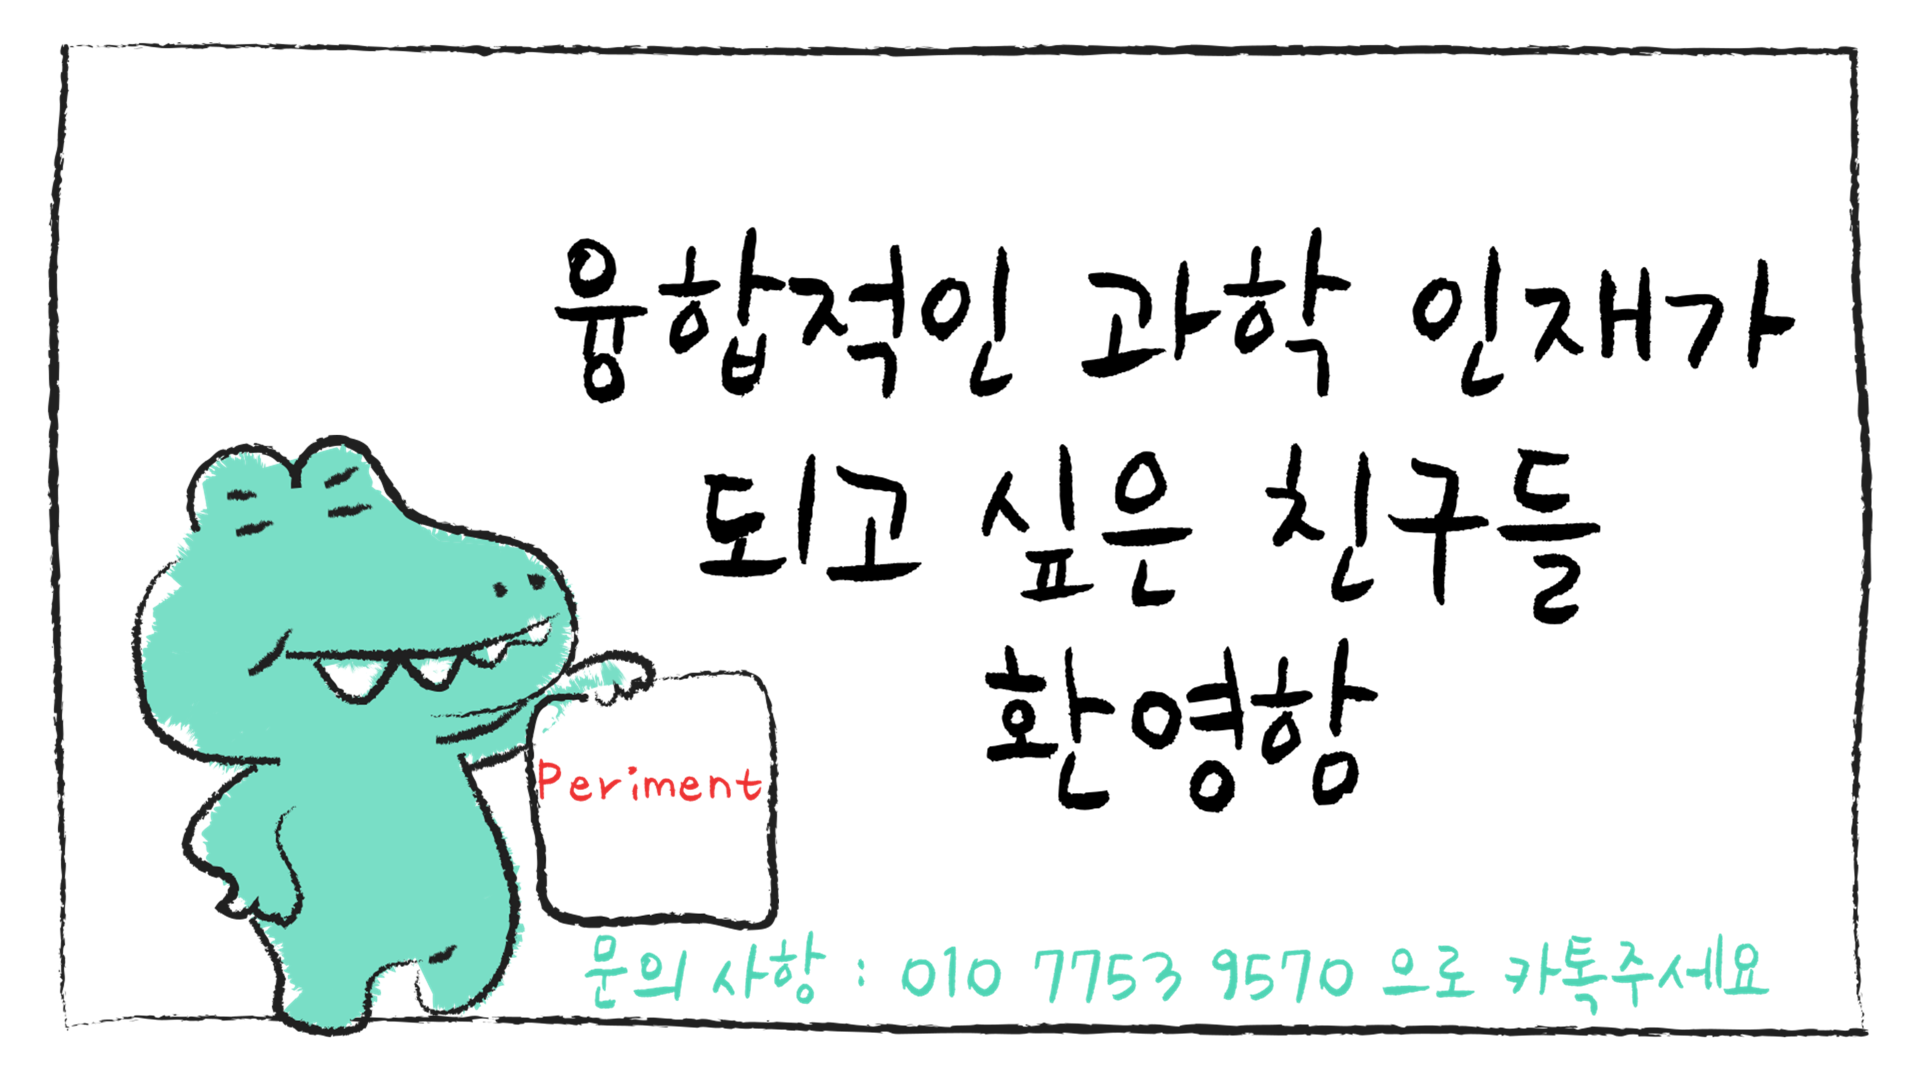 융합적인 과학 인재가
되고 싶은 친구들
환영항
Periment
문의 사항 : 010 7753 9570 으로 카톡주세요